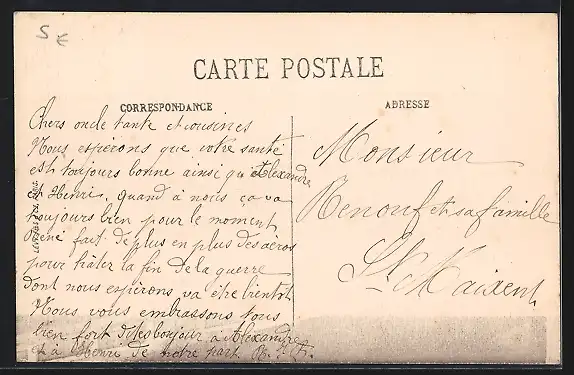 5 €
CARTE POSTALE
CORRESPONDANCE
ADRESSE
Chers oncle tante et cousines
Nous espérons que votre santé
est toujours bonne ainsi qu'Alexandre
et Henri, quand à nous ça va
toujours bien pour le moment
René fait de plus en plus des aéros
pour hâter la fin de la guerre
dont nous espérons va être bientôt
Nous vous embrassons tous
bien fort dites bonjour à Alexandre
et à Henri de notre part.
Monsieur
Renouf et sa famille
St Maixent